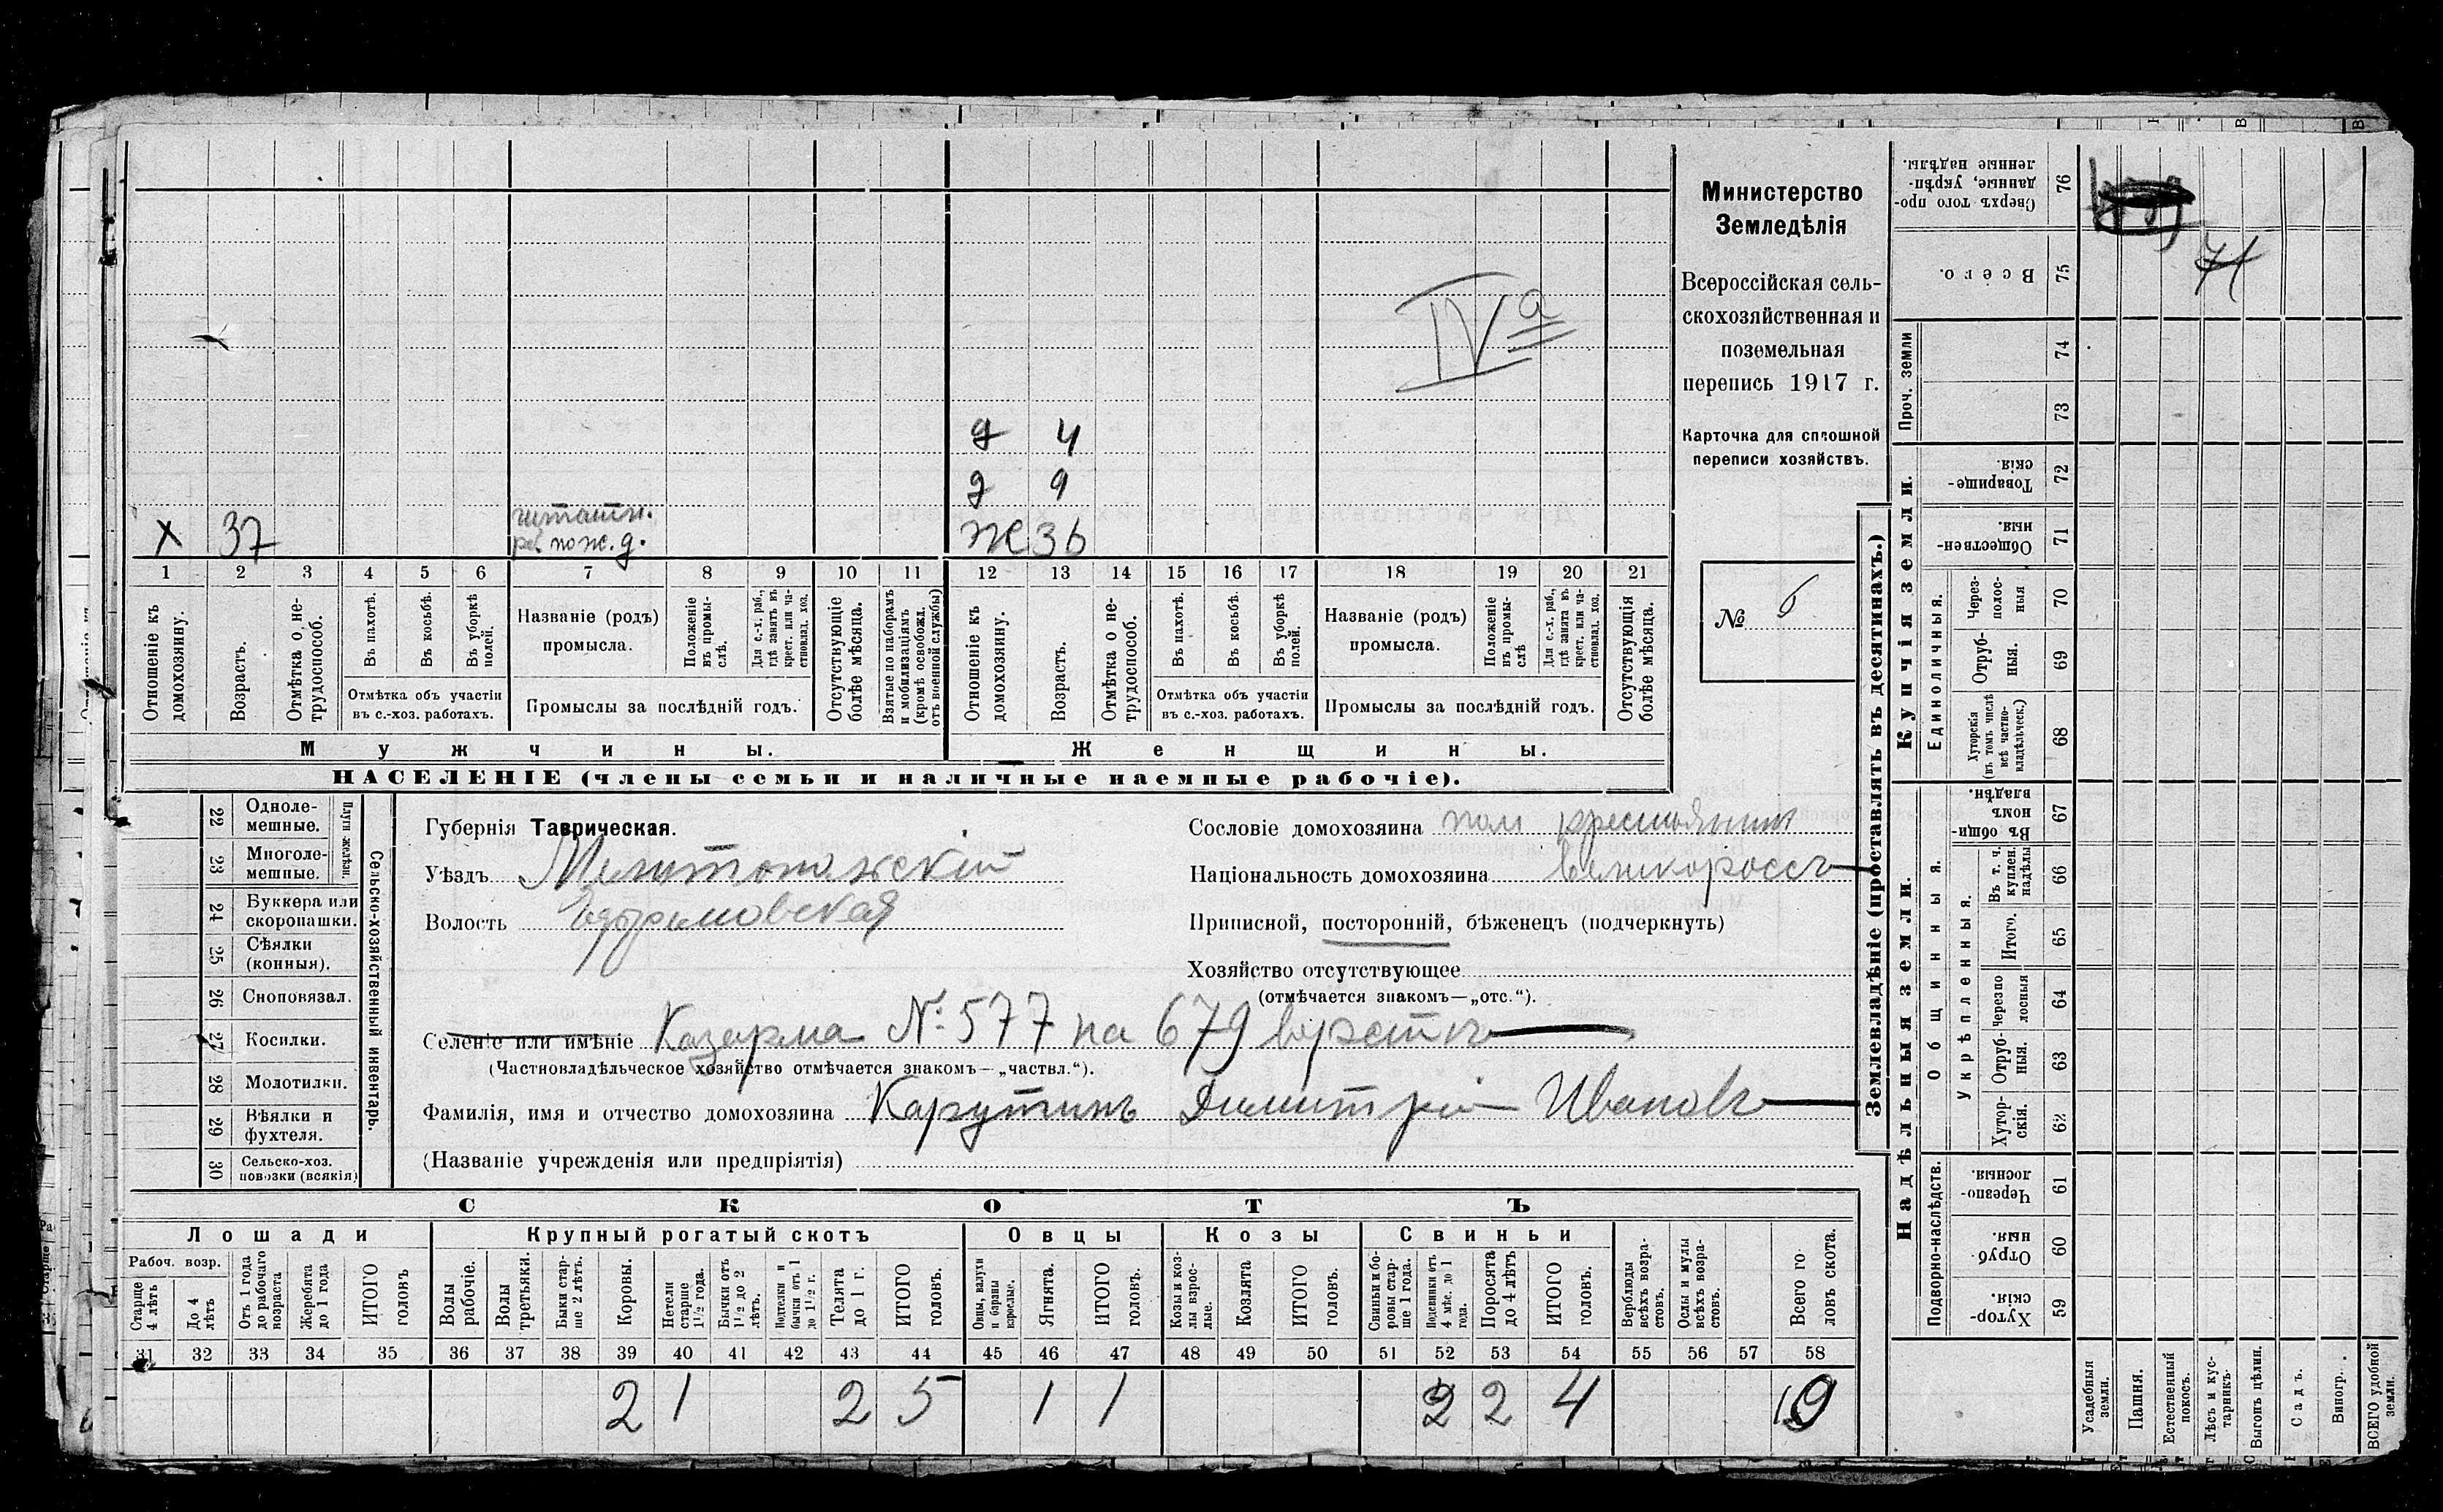 Министерство
Земледѣлія
Всероссійская сель-
скохозяйственная и
поземельная
перепись 1917 г.
Карточка для сплошной
переписи хозяйствъ.
№ 6
IV а
д 4
д 9
штатн.
Х 37 раб. по ж. д. Ж 36
1 2 3 4 5 6 7 8 9 10 11 12 13 14 15 16 17 18 19 20 21
Отношеніе къ домохозяину.
Возрастъ.
Отмѣтка о не-трудоспособ.
Въ пахотѣ.
Въ косьбѣ.
Въ уборкѣ полей.
Отмѣтка объ участіи
въ с.-хоз. работахъ.
Названіе (родъ)
промысла.
Положеніе въ промы-слѣ.
Для с.-х. раб., гдѣ занятъ въ крест. или ча-стновлад. хоз.
Промыслы за послѣдній годъ.
Отсутствующіе болѣе мѣсяца.
Взятые по наборамъ и мобилизаціямъ (кромѣ освобожд. отъ военной службы)
Отношеніе къ домохозяину.
Возрастъ.
Отмѣтка о не-трудоспособ.
Въ пахотѣ.
Въ косьбѣ.
Въ уборкѣ полей.
Отмѣтка объ участіи
въ с.-хоз. работахъ.
Названіе (родъ)
промысла.
Положеніе въ промы-слѣ
Для с.-х. раб., гдѣ занята въ крест. или ча-стновлад. хоз.
Промыслы за послѣдній годъ.
Отсутствующія болѣе мѣсяца.
Мужчины.
Женщины.
НАСЕЛЕНІЕ (члены семьи и наличные наемные рабочіе).
22 Одноле-мешные.
23 Многоле-мешные.
Плуги желѣзн.
24 Буккера или скоропашки.
25 Сѣялки (конныя).
26 Сноповязал.
27 Косилки.
28 Молотилки.
29 Вѣялки и фухтеля.
30 Сельско-хоз. повозки (всякія)
Сельско-хозяйственный инвентарь.
Губернія Таврическая.
Уѣздъ Мелитопольскій
Волость Ефремовская
Сословіе домохозяина крестьянин
Національность домохозяина великороссъ
Приписной, посторонній, бѣженецъ (подчеркнуть)
Хозяйство отсутствующее
(отмѣчается знакомъ—„отс.“).
Селеніе или имѣніе Казарма № 577 на 679 верстѣ
(Частновладѣльческое хозяйство отмѣчается знакомъ—„частвл.“).
Фамилія, имя и отчество домохозяина Карутинъ Димитрій Ивановъ
(Названіе учрежденія или предпріятія)
СКОТЪ
Лошади Крупный рогатый скотъ Овцы Козы Свиньи
Рабоч. возр.
Старше 4 лѣтъ
До 4 лѣтъ
Отъ 1 года до рабочаго возраста
Жеребята до 1 года
ИТОГО головъ
Волы рабочіе.
Волы третьяки.
Быки стар-ше 2 лѣтъ.
Коровы.
Нетели старше 1½ года.
Бычки отъ 1½ до 2 лѣтъ.
Подтелки и бычки отъ 1 до 1½ г.
Телята до 1 г.
ИТОГО головъ.
Овцы, валухи и бараны взрослые.
Ягнята.
ИТОГО головъ.
Козы и коз-лы взрос-лые.
Козлята
ИТОГО головъ.
Свиньи и бо-ровы стар-ше 1 года.
Подсвинки отъ 4 мѣс. до 1 года.
Поросята до 4 лѣтъ
ИТОГО головъ.
Верблюды всѣхъ возра-стовъ.
Ослы и мулы всѣхъ возра-стовъ.
Всего го-ловъ скота.
31 32 33 34 35 36 37 38 39 40 41 42 43 44 45 46 47 48 49 50 51 52 53 54 55 56 57 58
2 1 2 5 1 1 2 2 4
Землевладѣніе (проставлять въ десятинахъ.)
Надѣльныя земли.
Купчія земли.
Проч. земли
Подворно-наслѣдств.
Общинныя.
Укрѣпленныя.
Единоличныя.
76 Сверхъ того про-данные, укрѣп-ленные надѣлы.
75 Всего.
74
73
72 Товарище-скія.
71 Обществен-ныя.
70 Через-полос-ныя
69 Отруб-ныя.
68 Хуторскія (въ томъ числѣ всѣ частно-владѣльческ.)
67 Въ общи-номъ владѣн.
66 Въ т. ч. куплен. надѣлы
65 Итого.
64 Черезпо лосныя
63 Отруб-ныя.
62 Хутор-скія.
61 Черезпо-лосныя
60 Отруб-ныя.
59 Хутор-скія.
Усадебныя земли.
Пашня.
Естественный покосъ.
Лѣсъ и кус-тарникъ
Выгонъ цѣлин.
Садъ.
Виногр.
ВСЕГО удобной земли.
71